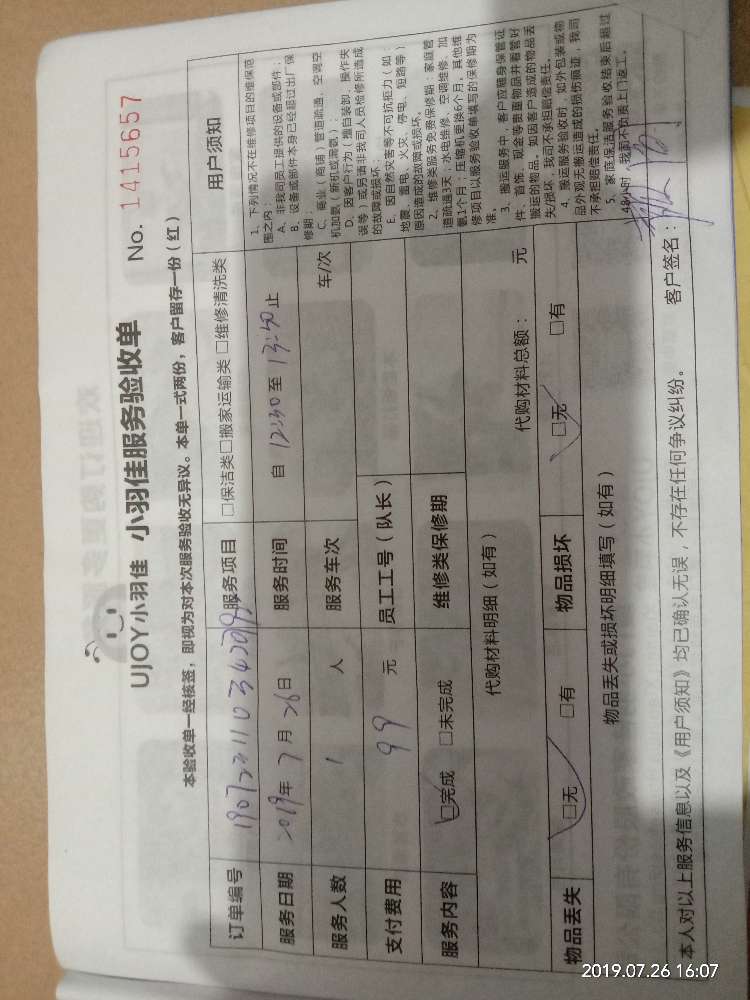 UJOY小羽佳 小羽佳服务验收单 No. 1415657
本验收单一经核签，即视为对本次服务验收无异议。本单一式两份，客户留存一份（红）
订单编号 服务项目 □保洁类□搬家运输类□维修清洗类
服务日期 2019年7月26日 服务时间 自 12:30 至 13:50 止
服务人数 1 人 服务车次 车/次
支付费用 99 元 员工工号（队长）
服务内容 □完成 □未完成 维修类保修期
代购材料明细（如有） 代购材料总额： 元
物品丢失 □无 □有 物品损坏 □无 □有
物品丢失或损坏明细填写（如有）
用户须知
1、下列情况不在维修项目的维保范
围之内：
A、非我司员工提供的设备或部件；
B、设备或部件本身已经超过出厂保
修期；
C、商业（商铺）管道疏通、空调空
机加氨（新机或漏氨）；
D、因客户行为（擅自装卸、操作失
误等）或另请非我司人员检修所造成
的故障或损坏；
E、因自然灾害等不可抗拒力（如：
地震、雷电、火灾、停电、短路等）
原因造成的故障或损坏。
2、维修类服务免费保修期：家庭管
道疏通3天；水电维修、空调维修、加
氨1个月；压缩机更换6个月，其他维
修项目以服务验收单填写的保修期为
准。
3、搬运服务中，客户应随身保管证
件、首饰、现金等贵重物品并看管好
搬运的物品。如因客户造成的物品丢
失/损坏，我司不承担赔偿责任。
4、搬运服务验收时，如外包装或物
品外观无搬运造成的损伤痕迹，我司
不承担赔偿责任。
5、家庭保洁服务验收结束后超过
48小时，我司不负责上门返工。
本人对以上服务信息以及《用户须知》均已确认无误，不存在任何争议纠纷。 客户签名：
2019.07.26 16:07